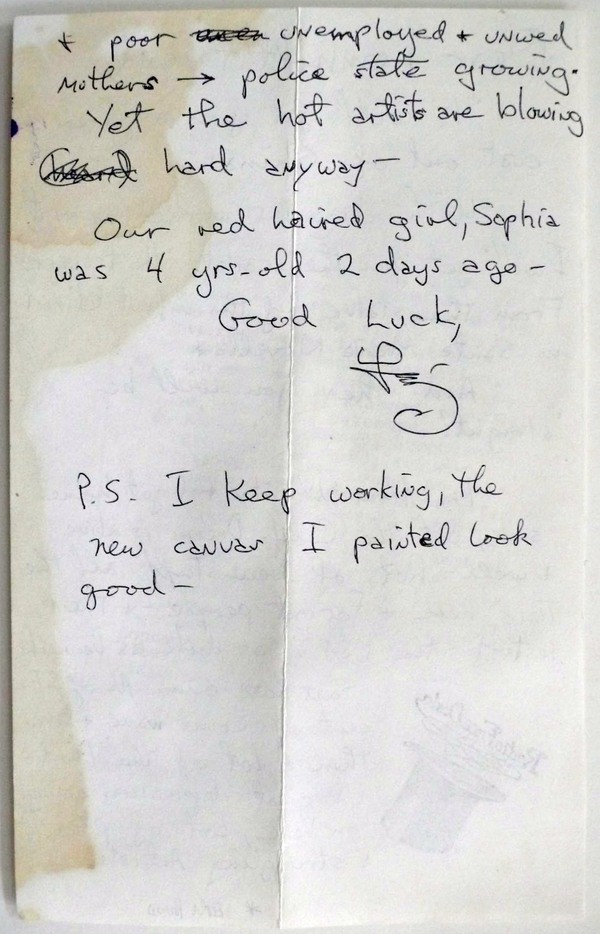 * poor unemployed * unwed
Mothers → police state growing.
Yet the hot artists are blowing
hard anyway —
Our red haired girl, Sophia
was 4 yrs-old 2 days ago —
Good Luck,
P.S. I Keep working, the
new canvas I painted look
good —